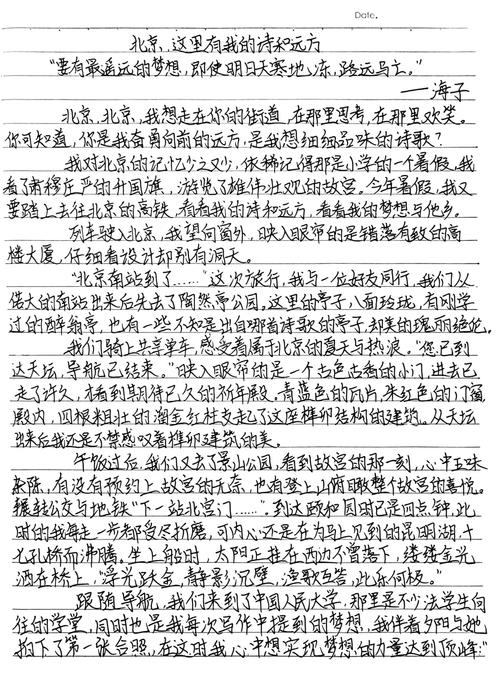 Date.
北京,这里有我的诗和远方
“要有最遥远的梦想,即使明日天寒地冻,路远马亡。”
——海子
北京,北京,我想走在你的街道,在那里思考,在那里欢笑。
你可知道,你是我奋勇向前的远方,是我想细细品味的诗歌?
我对北京的记忆少之又少,依稀记得那是小学的一个暑假,我
看了肃穆庄严的升国旗,游览了雄伟壮观的故宫。今年暑假,我又
要踏上去往北京的高铁,看看我的诗和远方,看看我的梦想与他乡。
列车驶入北京,我望向窗外,映入眼帘的是错落有致的高
楼大厦,仔细看设计却别有洞天。
“北京南站到了……”这次旅行,我与一位好友同行,我们从
偌大的南站出来后先去了陶然亭公园。这里的亭子八面玲珑,有刚学
过的醉翁亭,也有一些不知是出自哪首诗歌的亭子,却美的瑰丽绝伦。
我们骑上共享单车,感受着属于北京的夏天与热浪。“您已到
达天坛,导航已结束。”映入眼帘的是一个古色古香的小门,进去已
走了许久,才看到期待已久的祈年殿。青蓝色的瓦片,朱红色的门窗
殿内,四根粗壮的溜金红柱支起了这座榫卯结构的建筑。从天坛
出来后我还是不禁感叹着榫卯建筑的美。
午饭过后,我们又去了景山公园,看到故宫的那一刻,心中五味
杂陈,有没有预约上故宫的无奈,也有登上山俯瞰整个故宫的喜悦。
辗转公交与地铁“下一站北宫门……”,到达颐和园时已是四点钟,此
时的我每走一步都受尽折磨,可内心还是在为马上见到的昆明湖,十
七孔桥而沸腾。坐上船时,太阳正挂在西边不曾落下,缕缕金光
洒在桥上,“浮光跃金,静影沉璧,渔歌互答,此乐何极。”
跟随导航,我们来到了中国人民大学,那里是不少法学生向
往的学堂,同时也是我每次写作中提到的梦想,我伴着夕阳与她
拍下了第一张合照,在这时我心中想实现梦想的力量达到顶峰:“